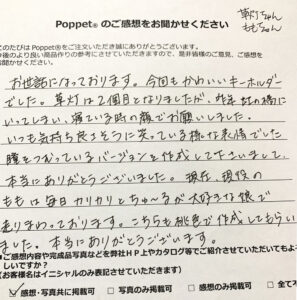 Poppet® のご感想をお聞かせください
草灯ちゃん
ももちゃん
てのたびは Poppet®をご注文いただき誠にありがとうございます。
後のより良い商品作りの参考にさせていただきますので、是非皆様のご意見、ご感想を
お聞かせください。
お世話になっております。今回もかわいいキーホルダー
でした。草灯は2個目となりましたが、昨年虹の橋に
いってしまい、寝ている時の顔でお願いしました。
いつも気持ち良さそうに笑っている様な表情でした
瞳をつむっているバージョンを作成して下さいまして、
本当にありがとうございました。現在、現役の
ももは毎日カリカリとちゅ〜るが大好きな娘で
走りまわっております。こちらも桃色で作成してもらい
ました。本当にありがとうございます。
●ご感想内容や完成品写真などを弊社HP上やカタログ等でご紹介させていただいてもよ
しいですか？
(お客様名はイニシャルのみ表記させていただきます)
感想・写真共に掲載可 □ 写真のみ掲載可 □ 感想のみ掲載可 □ 全て不